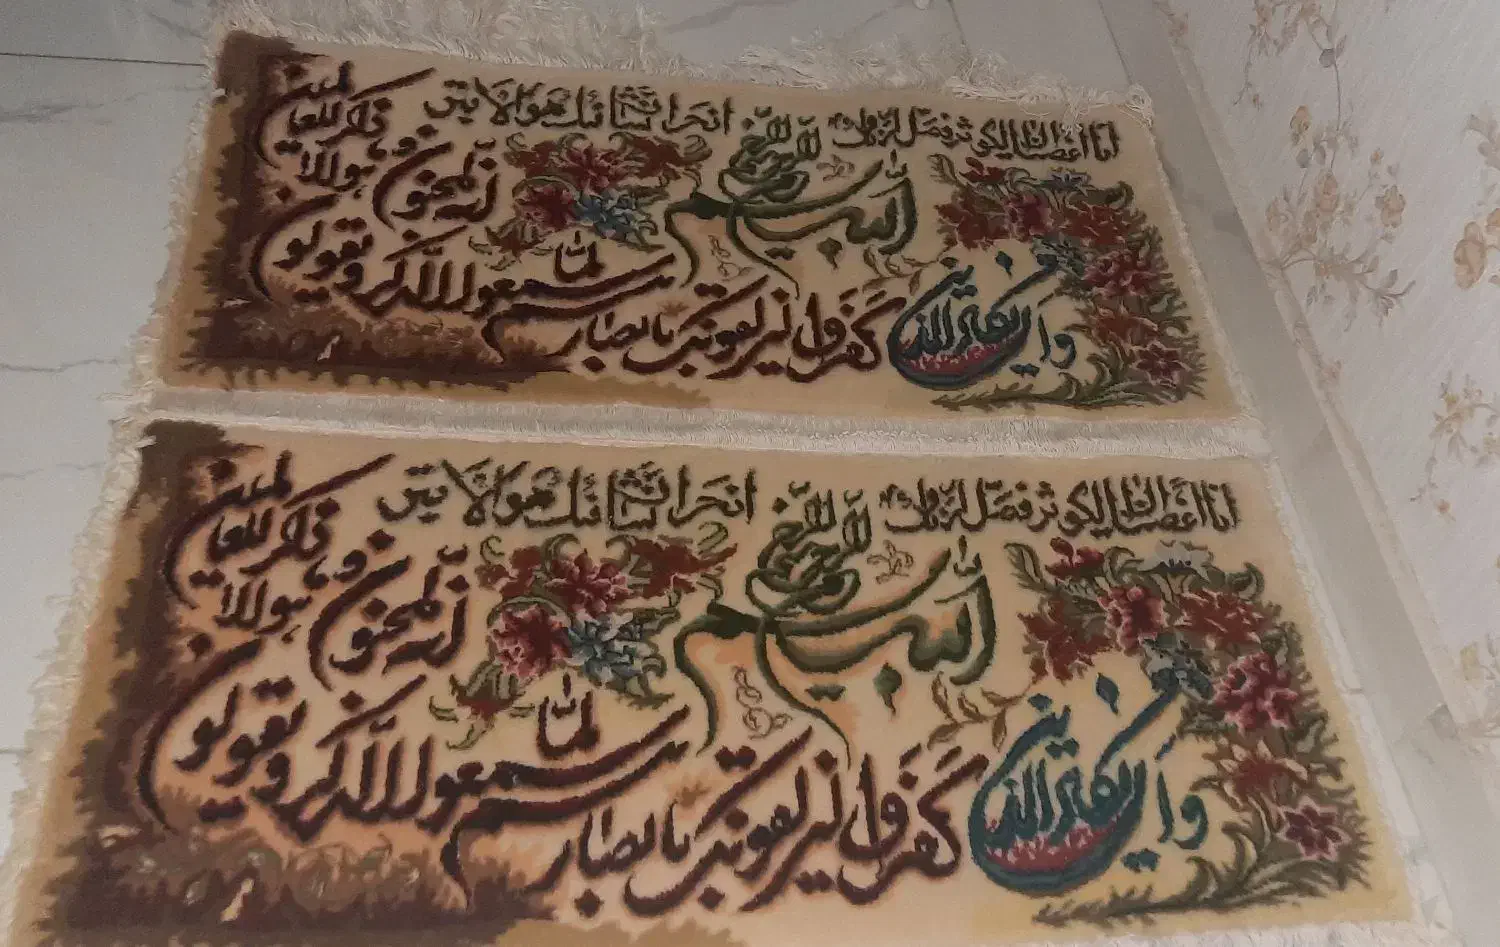 انا اعطیناک الکوثر فصل لربک و انحر ان شانئک هو الابتر
بسم الله الرحمن الرحیم
وان یکاد الذین
کفروا لیزلقونک بابصار
هم لما سمعوا الذکر و یقولون
انه لمجنون و
ما هو الا ذکر للعالمین
انا اعطیناک الکوثر فصل لربک و انحر ان شانئک هو الابتر
بسم الله الرحمن الرحیم
وان یکاد الذین
کفروا لیزلقونک بابصار
هم لما سمعوا الذکر و یقولون
انه لمجنون و
ما هو الا ذکر للعالمین